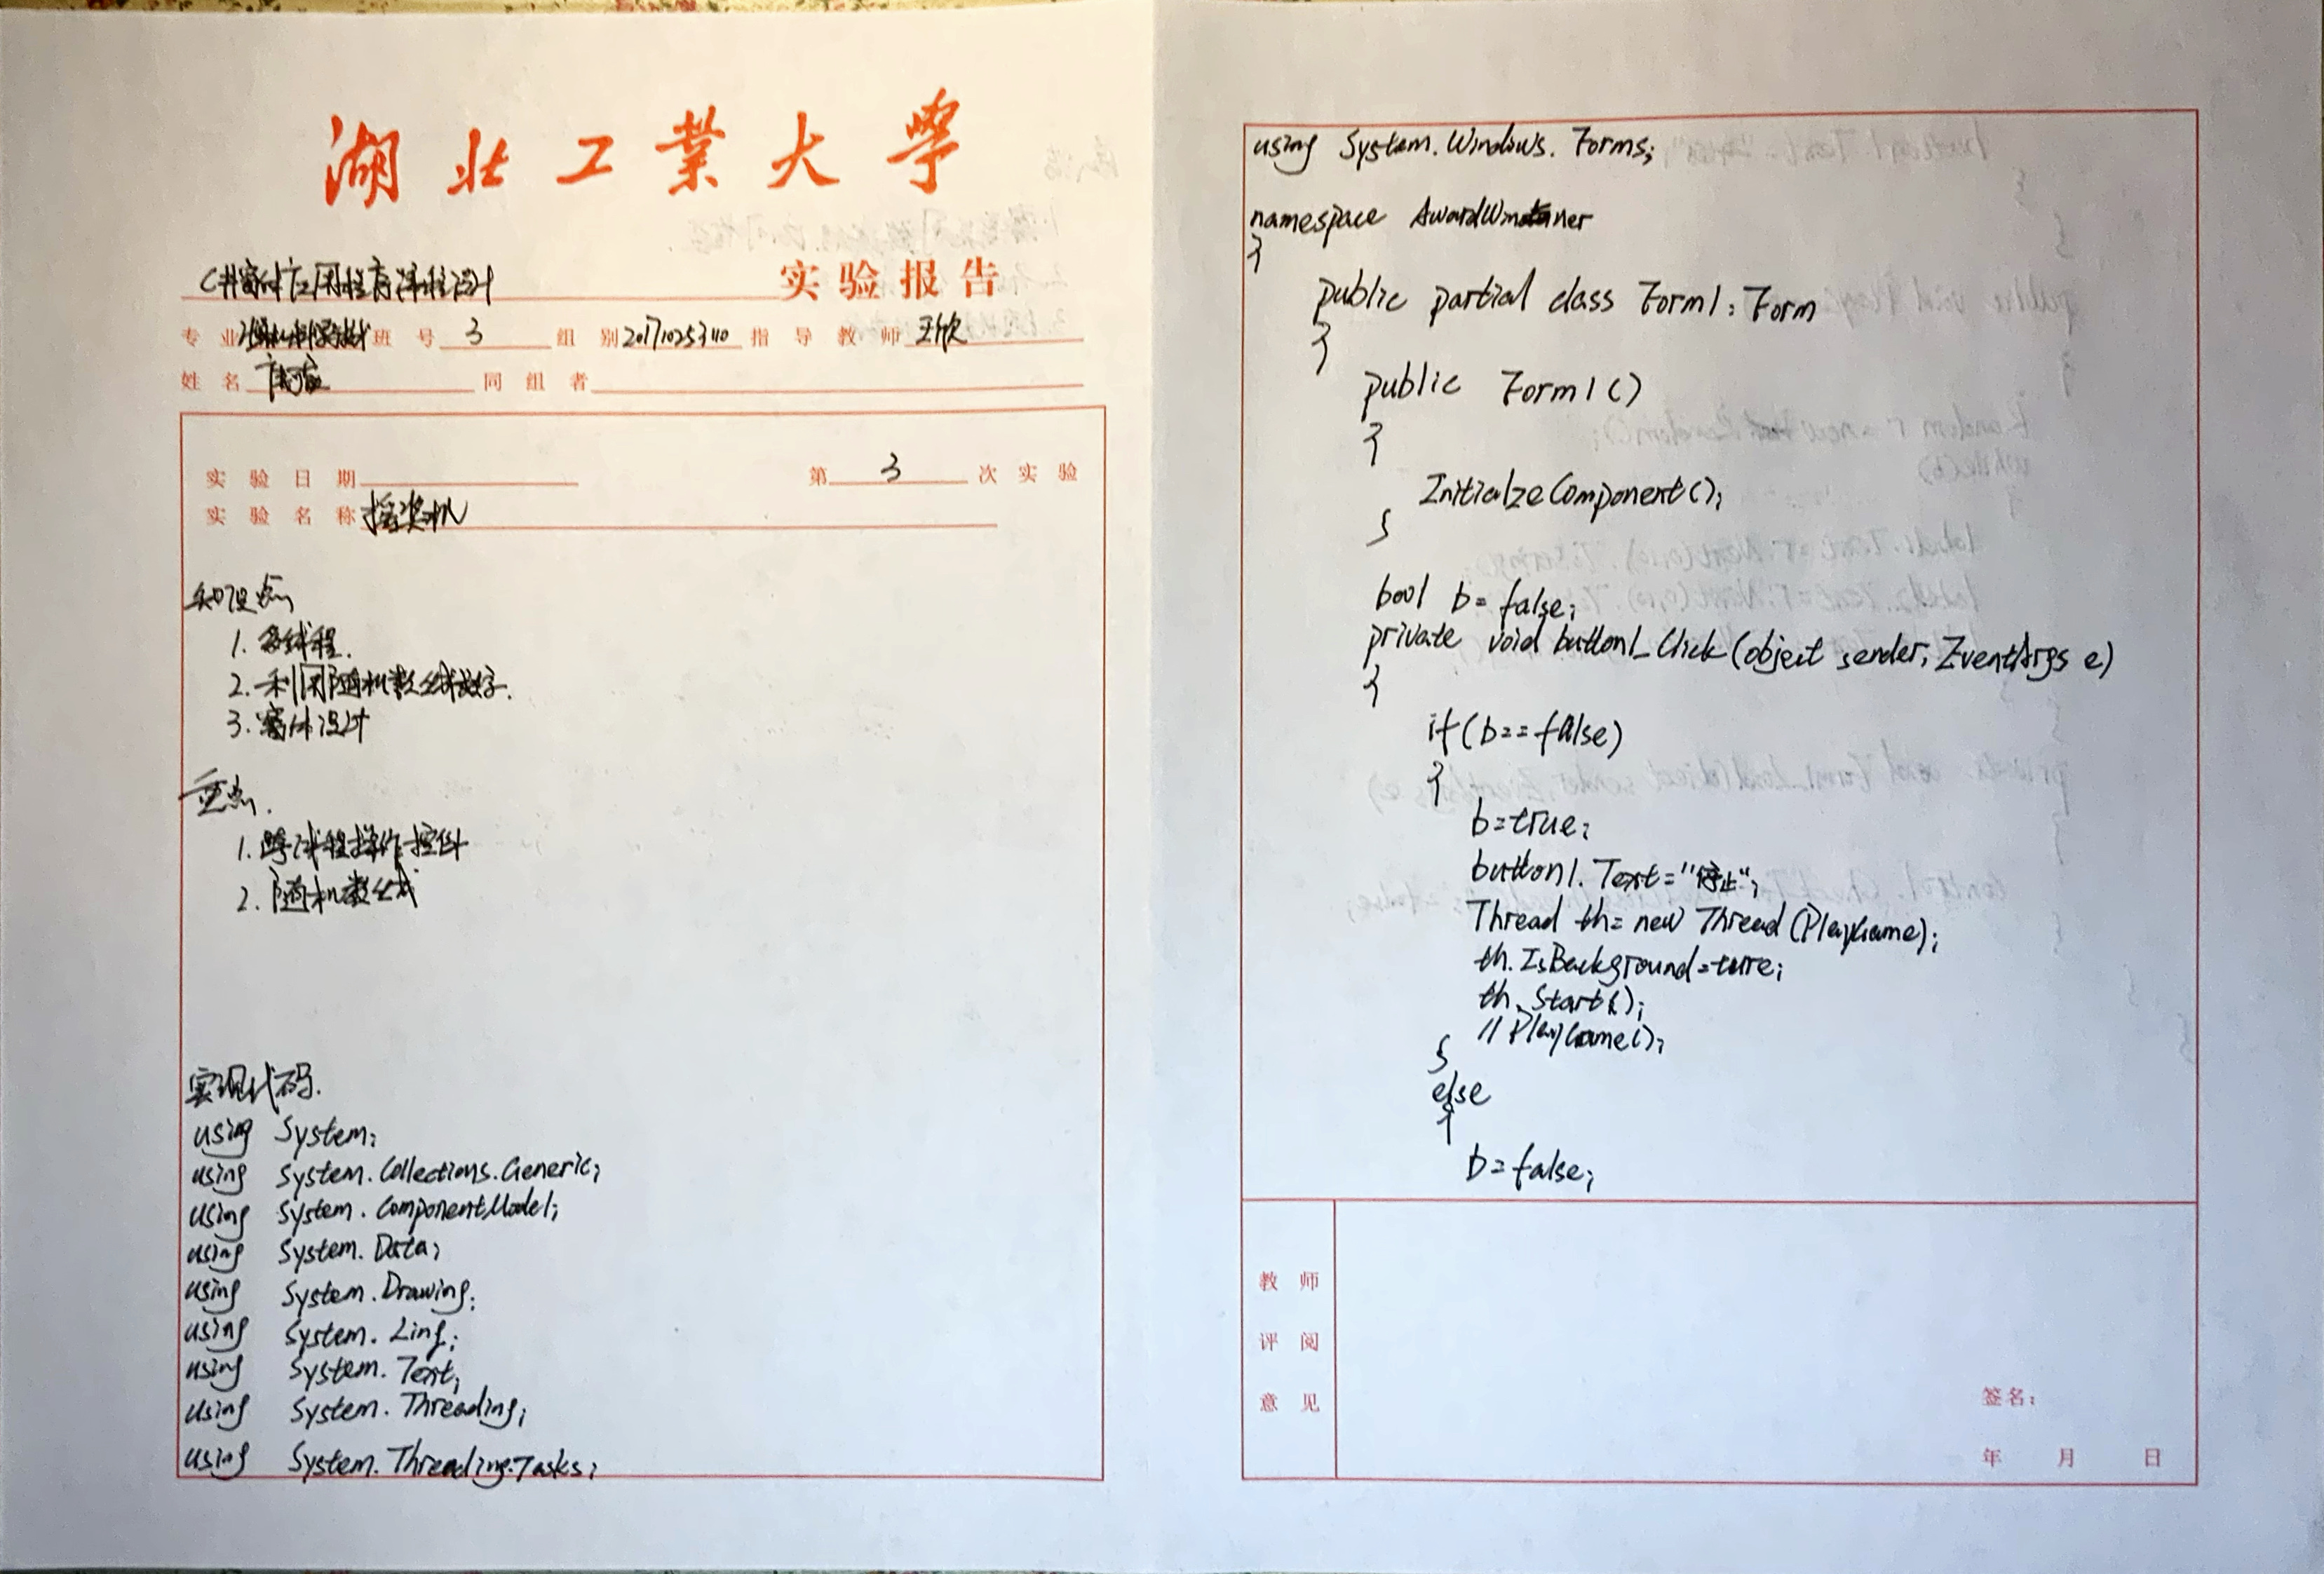 湖北工業大學
C#窗体应用程序课程设计 实验报告
专业 计算机科学与技术 班号 3 组别 指导教师 王欣
姓名 同组者
实验日期 第 3 次实验
实验名称 摇奖机
知识点
1. 多线程.
2. 利用随机数生成数字.
3. 窗体设计
重点.
1. 跨线程操作控件
2. 随机数生成
实现代码.
using System;
using System.Collections.Generic;
using System.ComponentModel;
using System.Data;
using System.Drawing;
using System.Linq;
using System.Text;
using System.Threading;
using System.Threading.Tasks;
using System.Windows.Forms;
namespace
{
public partial class Form1 : Form
{
public Form1()
{
InitialzeComponent();
}
bool b = false;
private void button1_Click(object sender, EventArgs e)
{
if(b==false)
{
b=true;
button1.Text="停止";
Thread th= new Thread(PlayGame);
th.IsBackground=ture;
th.Start();
//PlayGame();
}
else
{
b=false;
教师
评阅
意见
签名:
年 月 日